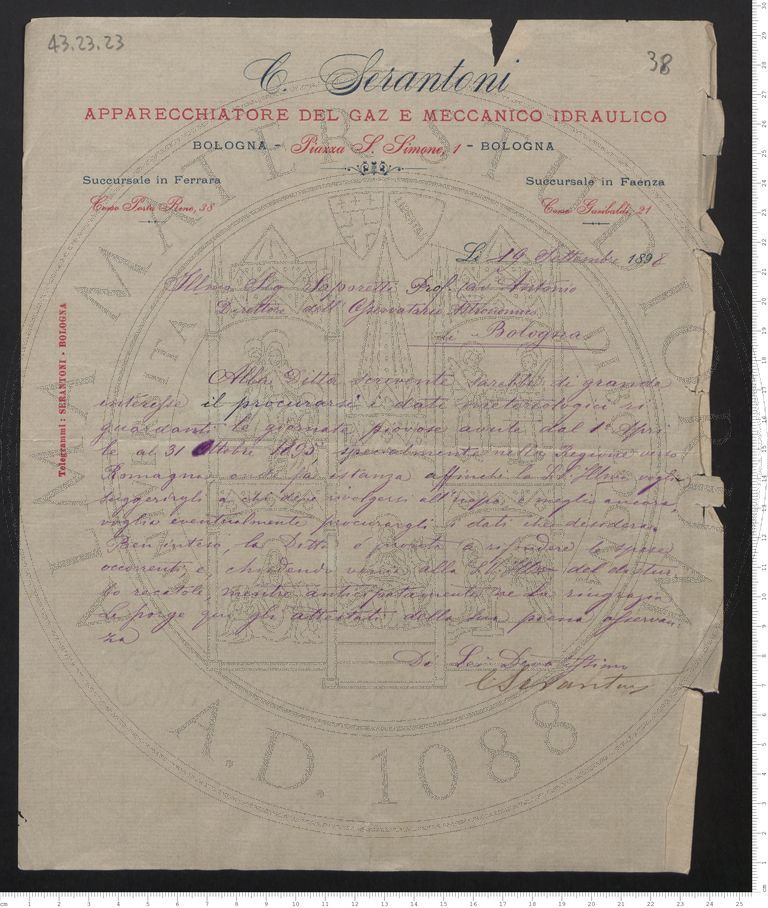 43.23.23
38
C. Serantoni
APPARECCHIATORE DEL GAZ E MECCANICO IDRAULICO
BOLOGNA - Piazza S. Simone, 1 - BOLOGNA
Succursale in Ferrara
Succursale in Faenza
Corso Porta Reno, 38
Corso Garibaldi, 21
Telegrammi: SERANTONI - BOLOGNA
Li 19 Settembre 1898
Illmo Sig. Saporetti Prof. Cav Antonio
Direttore dell'Osservatorio Astronomico
di Bologna
Alla Ditta scrivente sarebbe di grande
interesse il procurarsi i dati meteriologici ri
guardanti le giornate piovose avute dal 1° Apri
le al 31 Ottobre 1895, specialmente nella Regione
Romagna onde fa istanza affinchè la S.V. Illma voglia
suggerirgli a chi deve rivolgersi all'uopo, o meglio ancora,
voglia eventualmente procurargli i dati che desidera.
Ben inteso, la Ditta è pronta a rifondere le spese
occorrenti e, chiedendo venia alla S.V. Illma del distur
bo recatole, mentre anticipatamente ne La ringrazia
Le porge qui gli attestati della sua piena osservan
za
Di Lei Devotissimo
C Serantoni
A.D. 1088